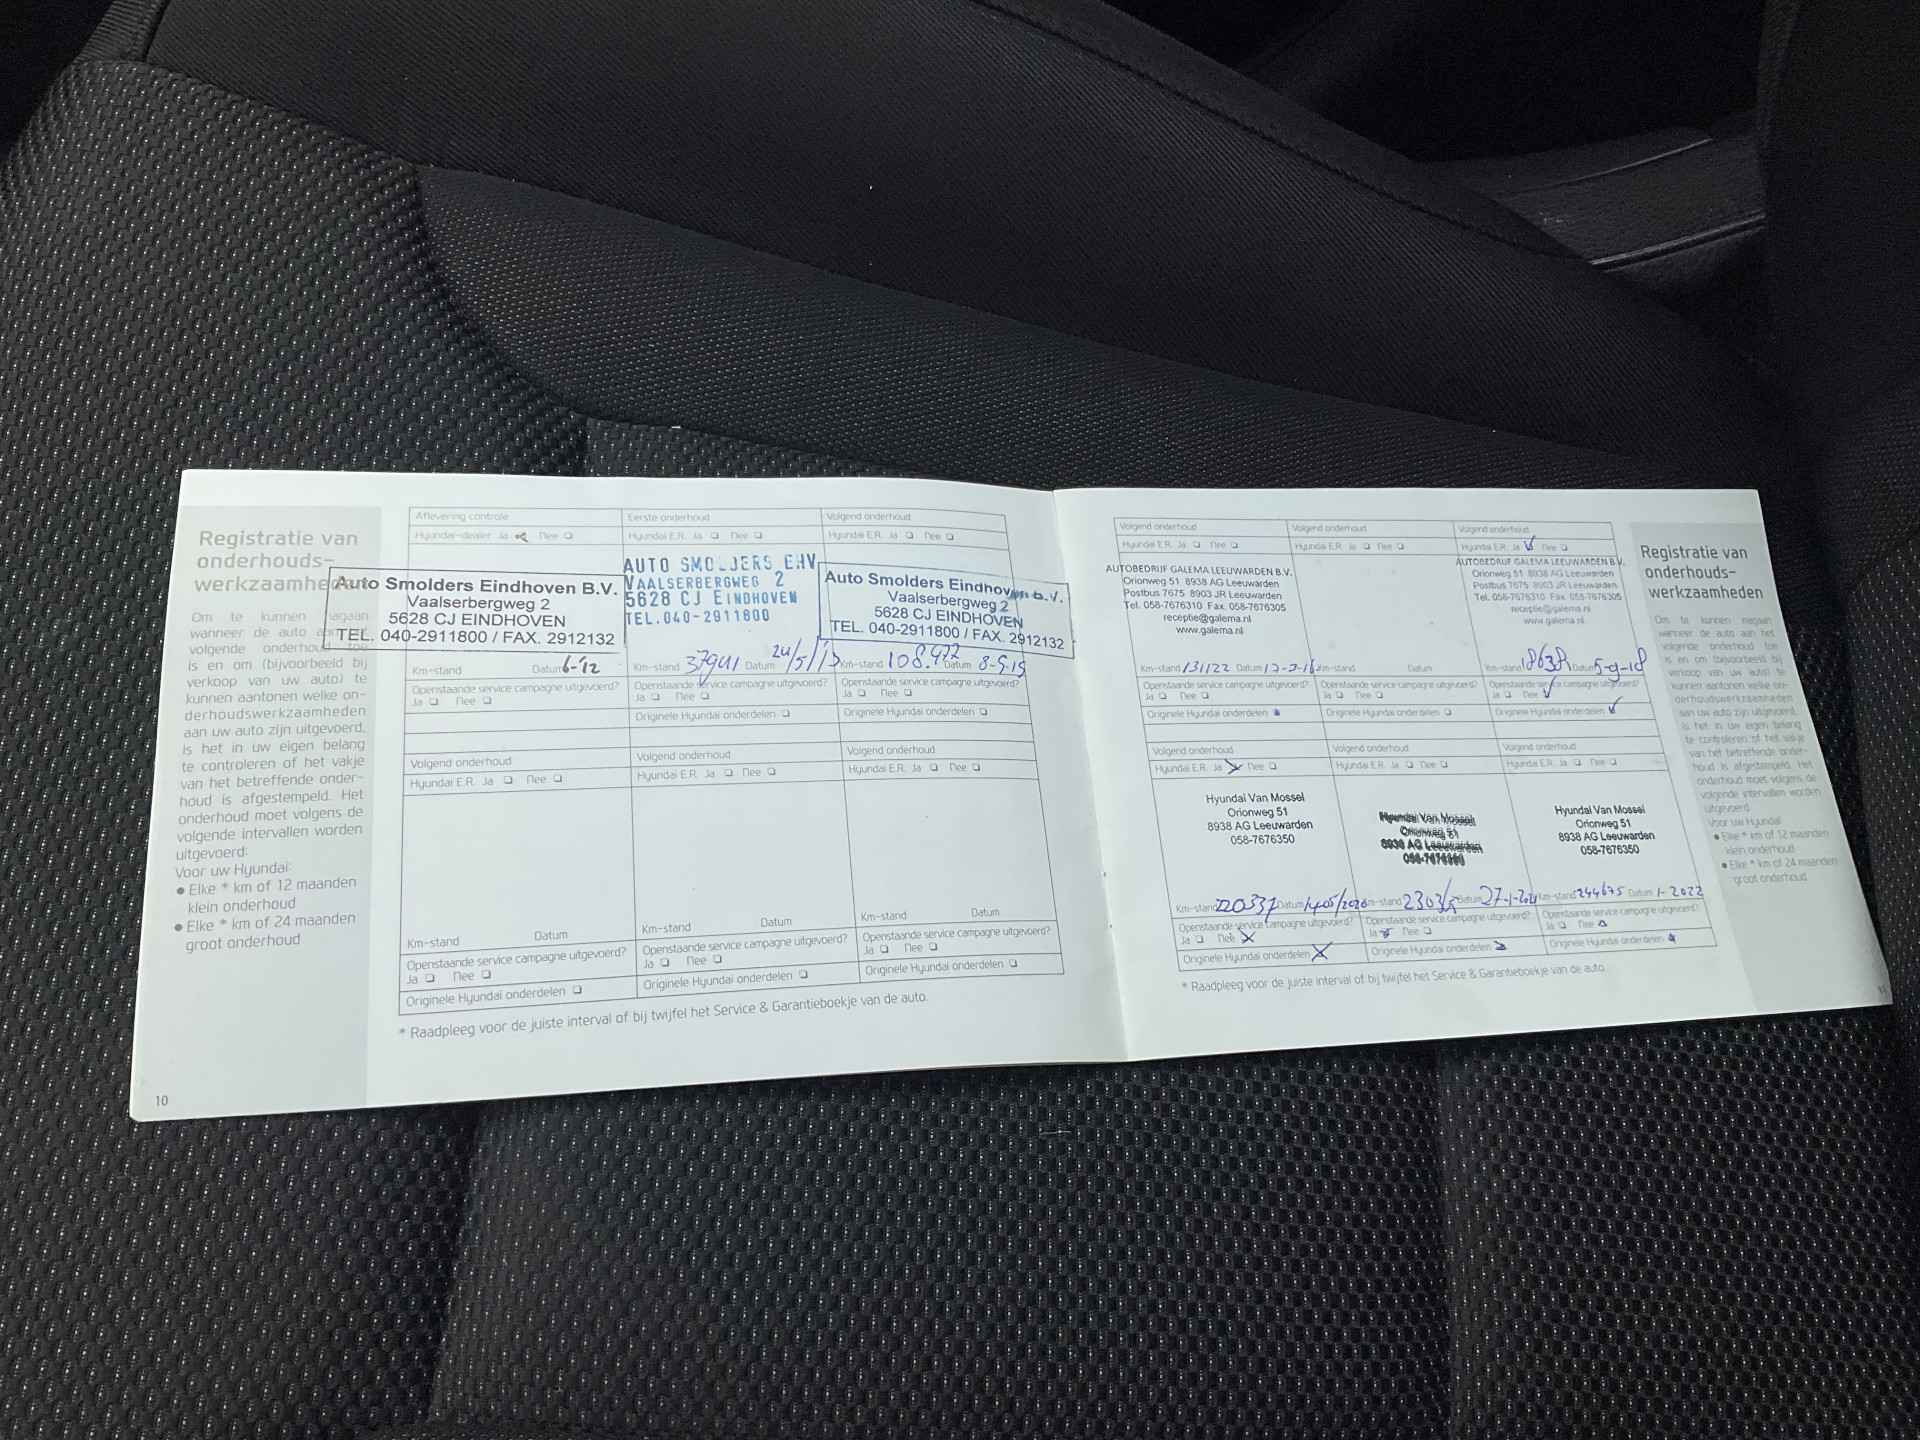 Registratie van
onderhouds-
werkzaamhe
Om te kunnen nagaan
wanneer de auto
volgende onderhoud toe
is en om (bijvoorbeeld bij
verkoop van uw auto) te
kunnen aantonen welke on-
derhoudswerkzaamheden
aan uw auto zijn uitgevoerd,
is het in uw eigen belang
te controleren of het vakje
van het betreffende onder-
houd is afgestempeld. Het
onderhoud moet volgens de
volgende intervallen worden
uitgevoerd:
Voor uw Hyundai:
● Elke * km of 12 maanden
klein onderhoud
● Elke * km of 24 maanden
groot onderhoud
10
Aflevering controle
Hyundai-dealer Ja Nee
Auto Smolders Eindhoven B.V.
Vaalserbergweg 2
5628 CJ EINDHOVEN
TEL. 040-2911800 / FAX. 2912132
Km-stand Datum 6-'12
Openstaande service campagne uitgevoerd?
Ja Nee
Eerste onderhoud
Hyundai E.R. Ja Nee
AUTO SMOLDERS EHV
VAALSERBERGWEG 2
5628 CJ EINDHOVEN
TEL.040-2911800
Km-stand 37941 Datum 24/5/13
Openstaande service campagne uitgevoerd?
Ja Nee
Originele Hyundai onderdelen
Volgend onderhoud
Hyundai E.R. Ja Nee
Auto Smolders Eindhoven B.V.
Vaalserbergweg 2
5628 CJ EINDHOVEN
TEL. 040-2911800 / FAX. 2912132
Km-stand 108.972 Datum 8-5-15
Openstaande service campagne uitgevoerd?
Ja Nee
Originele Hyundai onderdelen
Volgend onderhoud
Hyundai E.R. Ja Nee
Km-stand Datum
Openstaande service campagne uitgevoerd?
Ja Nee
Originele Hyundai onderdelen
Volgend onderhoud
Hyundai E.R. Ja Nee
Km-stand Datum
Openstaande service campagne uitgevoerd?
Ja Nee
Originele Hyundai onderdelen
Volgend onderhoud
Hyundai E.R. Ja Nee
Km-stand Datum
Openstaande service campagne uitgevoerd?
Ja Nee
Originele Hyundai onderdelen
* Raadpleeg voor de juiste interval of bij twijfel het Service & Garantieboekje van de auto.
Volgend onderhoud
Hyundai E.R. Ja Nee
AUTOBEDRIJF GALEMA LEEUWARDEN B.V.
Orionweg 51 8938 AG Leeuwarden
Postbus 7675 8903 JR Leeuwarden
Tel. 058-7676310 Fax. 058-7676305
receptie@galema.nl
www.galema.nl
Km-stand 131122 Datum
Openstaande service campagne uitgevoerd?
Ja Nee
Originele Hyundai onderdelen
Volgend onderhoud
Hyundai E.R. Ja Nee
Km-stand Datum
Openstaande service campagne uitgevoerd?
Ja Nee
Originele Hyundai onderdelen
Volgend onderhoud
Hyundai E.R. Ja Nee
AUTOBEDRIJF GALEMA LEEUWARDEN B.V.
Orionweg 51 8938 AG Leeuwarden
Postbus 7675 8903 JR Leeuwarden
Tel. 058-7676310 Fax. 058-7676305
receptie@galema.nl
www.galema.nl
Km-stand Datum 5-9-18
Openstaande service campagne uitgevoerd?
Ja Nee
Originele Hyundai onderdelen
Volgend onderhoud
Hyundai E.R. Ja Nee
Hyundai Van Mossel
Orionweg 51
8938 AG Leeuwarden
058-7676350
Km-stand 220337 Datum 14/05/2020
Openstaande service campagne uitgevoerd?
Ja Nee
Originele Hyundai onderdelen
Volgend onderhoud
Hyundai E.R. Ja Nee
Hyundai Van Mossel
Orionweg 51
8938 AG Leeuwarden
Km-stand Datum 27-1-2021
Openstaande service campagne uitgevoerd?
Ja Nee
Originele Hyundai onderdelen
Volgend onderhoud
Hyundai E.R. Ja Nee
Hyundai Van Mossel
Orionweg 51
8938 AG Leeuwarden
058-7676350
Km-stand 244675 Datum 1-2022
Openstaande service campagne uitgevoerd?
Ja Nee
Originele Hyundai onderdelen
* Raadpleeg voor de juiste interval of bij twijfel het Service & Garantieboekje van de auto.
Registratie van
onderhouds-
werkzaamheden
Om te kunnen nagaan
wanneer de auto aan het
volgende onderhoud toe
is en om (bijvoorbeeld bij
verkoop van uw auto) te
kunnen aantonen welke on-
derhoudswerkzaamheden
aan uw auto zijn uitgevoerd,
is het in uw eigen belang
te controleren of het vakje
van het betreffende onder-
houd is afgestempeld. Het
onderhoud moet volgens de
volgende intervallen worden
uitgevoerd:
Voor uw Hyundai:
● Elke * km of 12 maanden
klein onderhoud
● Elke * km of 24 maanden
groot onderhoud